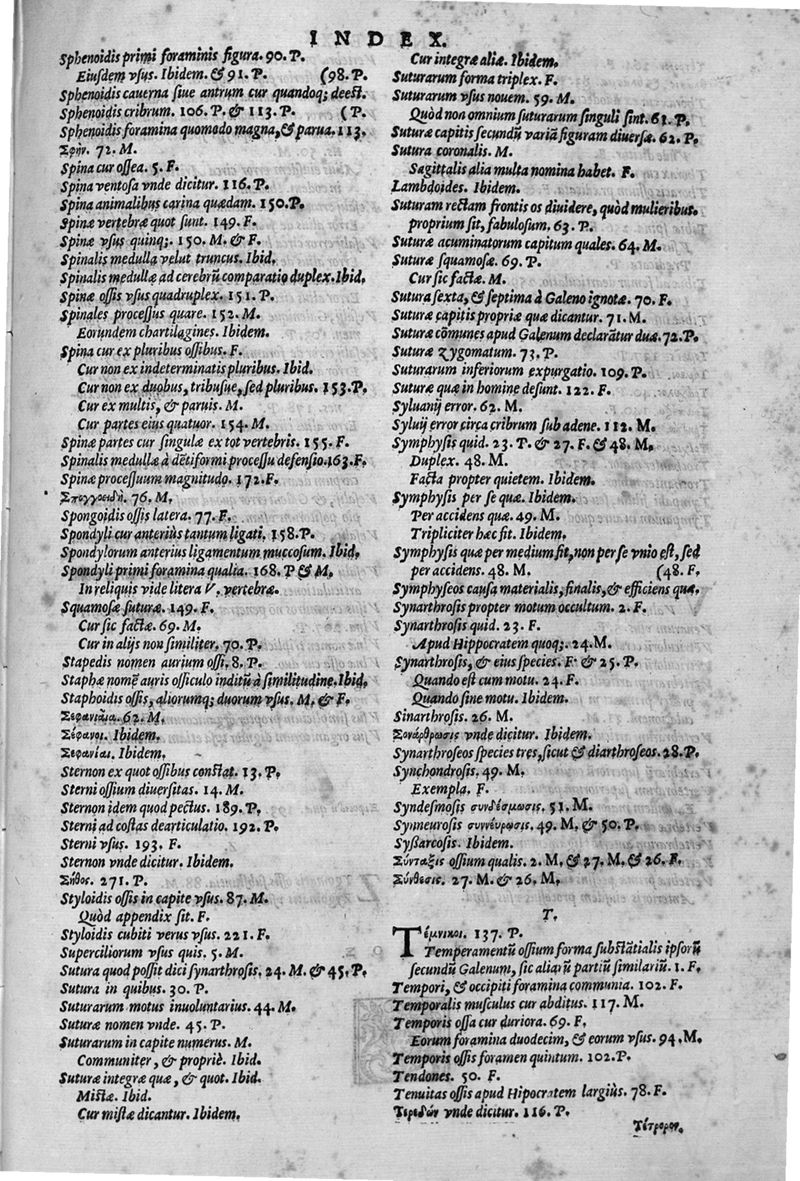 INDEX.
Sphenoidis primi foraminis figura. 90. P.
Eiusdem vsus. Ibidem. & 91. P. (98. P.
Sphenoidis cauerna siue antrum cur quandoq; deest.
Sphenoidis cribrum. 106. P. & 113. P. ( P.
Sphenoidis foramina quomodo magna, & parua. 113.
Σφὴν. 72. M.
Spina cur ossea. 5. F.
Spina ventosa vnde dicitur. 116. P.
Spina animalibus carina quædam. 150. P.
Spinæ vertebræ quot sunt. 149. F.
Spinæ vsus quinq;. 150. M. & F.
Spinalis medulla velut truncus. Ibid.
Spinalis medullæ ad cerebrũ comparatio duplex. Ibid.
Spinæ ossis vsus quadruplex. 151. P.
Spinales processus quare. 152. M.
Eorundem chartilagines. Ibidem.
Spina cur ex pluribus ossibus. F.
Cur non ex indeterminatis pluribus. Ibid.
Cur non ex duobus, tribusue, sed pluribus. 153. P.
Cur ex multis, & paruis. M.
Cur partes eius quatuor. 154. M.
Spinæ partes cur singulæ ex tot vertebris. 155. F.
Spinalis medullæ à dẽtiformi processu defensio. 163. F.
Spinæ processuum magnitudo. 172. F.
76. M.
Spongoidis ossis latera. 77. F.
Spondyli cur anterius tantum ligati. 158. P.
Spondylorum anterius ligamentum muccosum. Ibid.
Spondyli primi foramina qualia. 168. P & M.
In reliquis vide litera V. vertebræ.
Squamosæ suturæ. 149. F.
Cur sic factæ. 69. M.
Cur in alijs non similiter. 70. P.
Stapedis nomen aurium ossi. 8. P.
Staphæ nomẽ auris officulo inditũ à similitudine. Ibid.
Staphoidis ossis, aliorumq; duorum vsus. M. & F.
62. M.
Ibidem.
Ibidem.
Sternon ex quot ossibus constat. 13. P.
Sterni ossium diuersitas. 14. M.
Sternon idem quod pectus. 189. P.
Sterni ad costas dearticulatio. 192. P.
Sterni vsus. 193. F.
Sternon vnde dicitur. Ibidem.
271. P.
Styloidis ossis in capite vsus. 87. M.
Quòd appendix sit. F.
Styloidis cubiti verus vsus. 221. F.
Superciliorum vsus quis. 5. M.
Sutura quod possit dici synarthrosis. 24. M. & 45. P.
Sutura in quibus. 30. P.
Suturarum motus inuoluntarius. 44. M.
Suturæ nomen vnde. 45. P.
Suturarum in capite numerus. M.
Communiter, & propriè. Ibid.
Suturæ integræ quæ, & quot. Ibid.
Mistæ. Ibid.
Cur mistæ dicantur. Ibidem.
Cur integræ aliæ. Ibidem.
Suturarum forma triplex. F.
Suturarum vsus nouem. 59. M.
Quòd non omnium suturarum singuli sint. 61. P.
Suturæ capitis secundũ variã figuram diuersæ. 62. P.
Sutura coronalis. M.
Sagittalis alia multa nomina habet. F.
Lambdoides. Ibidem.
Suturam rectam frontis os diuidere, quòd mulieribus.
proprium sit, fabulosum. 63. P.
Suturæ acuminatorum capitum quales. 64. M.
Suturæ squamosæ. 69. P.
Cur sic factæ. M.
Sutura sexta, & septima à Galeno ignotæ. 70. F.
Suturæ capitis propriæ quæ dicantur. 71. M.
Suturæ cõmunes apud Galenum declarãtur duæ. 72. P.
Suturæ zygomatum. 73. P.
Suturarum inferiorum expurgatio. 109. P.
Suturæ quæ in homine desunt. 122. F.
Syluanij error. 62. M.
Syluij error circa cribrum sub adene. 112. M.
Symphysis quid. 23. P. & 27. F. & 48. M.
Duplex. 48. M.
Facta propter quietem. Ibidem.
Symphysis per se quæ. Ibidem.
Per accidens quæ. 49. M.
Tripliciter hæc fit. Ibidem.
Symphysis quæ per medium fit, non per se vnio est, sed
per accidens. 48. M. (48. F.
Symphyseos causa materialis, finalis, & efficiens quæ.
Synarthrosis propter motum occultum. 2. F.
Synarthrosis quid. 23. F.
Apud Hippocratem quoq;. 24. M.
Synarthrosis, & eius species. F. & 25. P.
Quando est cum motu. 24. F.
Quando sine motu. Ibidem.
Sinarthrosis. 26. M.
Σωνάρθρωσις vnde dicitur. Ibidem.
Synarthroseos species tres, sicut & diarthroseos. 28. P.
Synchondrosis. 49. M.
Exempla. F.
Syndesmosis συνδέσμωσις. 51. M.
Synneurosis συννέυρωσις. 49. M. & 50. P.
Syssarcosis. Ibidem.
Σύνταξις ossium qualis. 2. M. & 27. M. & 26. F.
Σύνθεσις. 27. M. & 26. M.
T.
Τέμνικοι. 137. P.
Temperamentũ ossium forma substãtialis ipsorũ
secundũ Galenum, sic aliarũ partiũ similariũ. 1. F.
Tempori, & occipiti foramina communia. 102. F.
Temporalis musculus cur abditus. 117. M.
Temporis ossa cur duriora. 69. F.
Eorum foramina duodecim, & eorum vsus. 94. M.
Temporis ossis foramen quintum. 102. P.
Tendones. 50. F.
Tenuitas ossis apud Hipocratem largiùs. 78. F.
Τερεδὼν vnde dicitur. 116. P.
Τέτρορον.